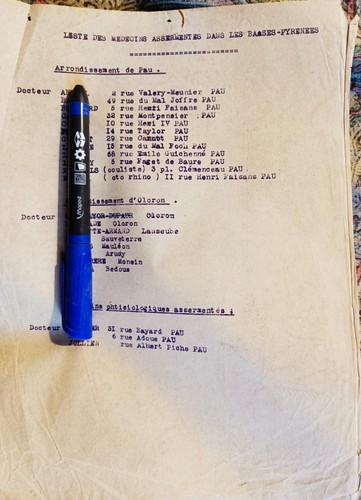 LISTE DES MEDECINS ASSERMENTES DANS LES BASSES-PYRENEES
Arrondissement de Pau .
Docteur 2 rue Valery-Meunier PAU
49 rue du Mal Joffre PAU
5 rue Henri Faisans PAU
32 rue Montpensier PAU
10 rue Henri IV PAU
14 rue Taylor PAU
29 rue Carnot PAU
15 rue du Mal Foch PAU
68 rue Emile Guichenné PAU
5 rue Faget de Baure PAU
LS (oculiste) 3 pl. Clémenceau PAU
( oto rhino ) II rue Henri Faisans PAU
d'Oloron .
Docteur Oloron
Oloron
TTE-ARMAND Lasseube
Sauveterre
Mauléon
Arudy
Monein
Bedous
ns phtisiologiques assermentés :
Docteur ER 31 rue Bayard PAU
6 rue Adoue PAU
JULLIEN rue Albert Piche PAU
Maped